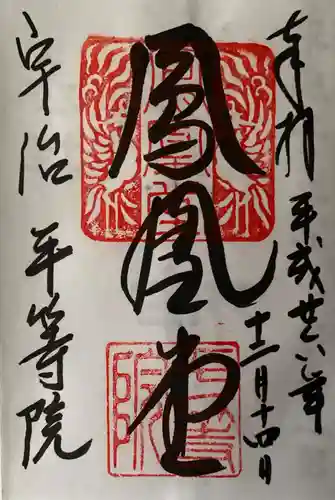 奉拝 平成廿六年
十二月十四日
鳳凰堂
宇治 平等院